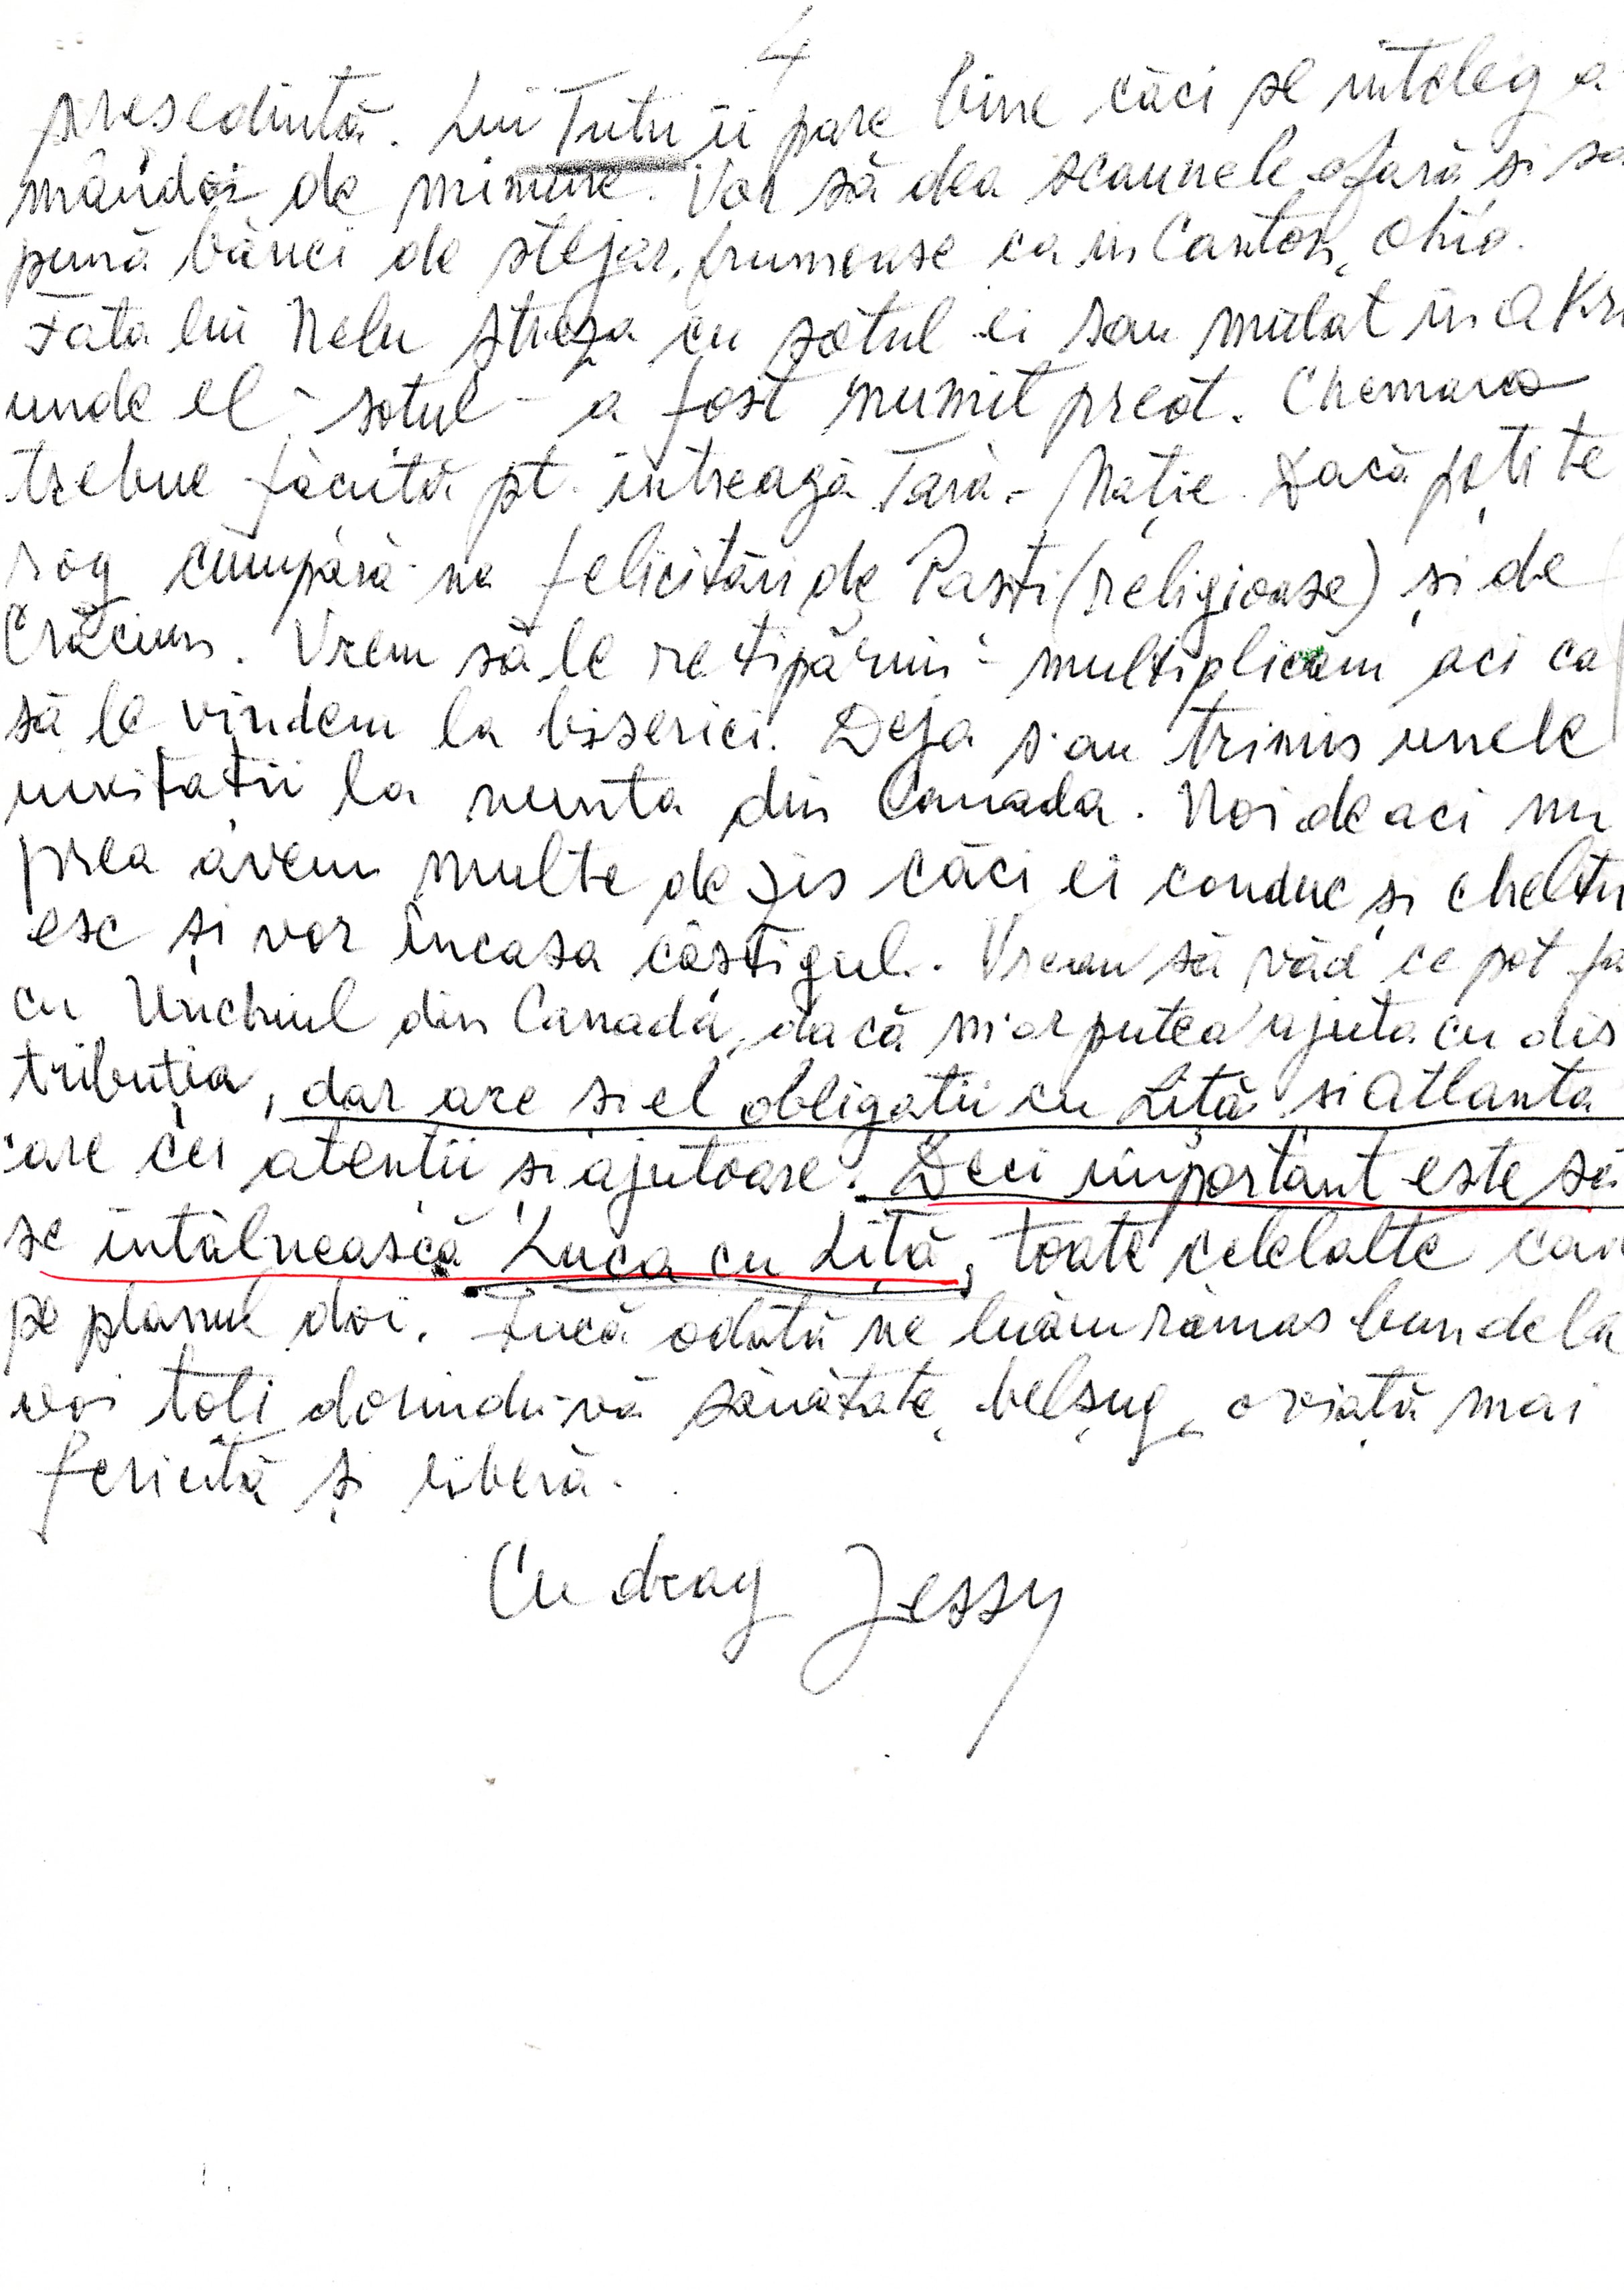 4
președintă. Lui Tutu îi pare bine căci se înteleg a
mândoi de minune. Vor să dea scaunele afară și să
pună bănci de stejar, frumoase ca in Canton, Ohio.
Fata lui Nelu Streza cu sotul ei sau mutat in Akr
unde el - sotul - a fost numit preot. Chemarea
trebue făcută pt. intreagă Tara - Nație. Dacă poti te
rog cumpără-ne felicitări de Pasti (religioase) și de
Crăciun. Vrem să le retipărim - multiplicăm aci ca
să le vindem la biserici. Deja s-au trimis unele
invitatii la nunta din Canada. Noi de aci nu
prea avem multe de zis căci ei conduc și cheltu
esc și vor încasa câștigul. Vreau să văd ce pot fa
cu Unchiul din Canada, dacă m-ar putea ajuta cu dis
tribuția, dar are și el obligatii cu Lită si Atlanta
care cer atentii si ajutoare. Deci important este să
se întâlnească Luca cu Lită, toate celelalte cad
pe planul doi. Încă odată ne luăm rămas bun de la
voi toti dorindu-vă sănătate, belșug, o viață mai
fericită și liberă.
Cu drag Jessy